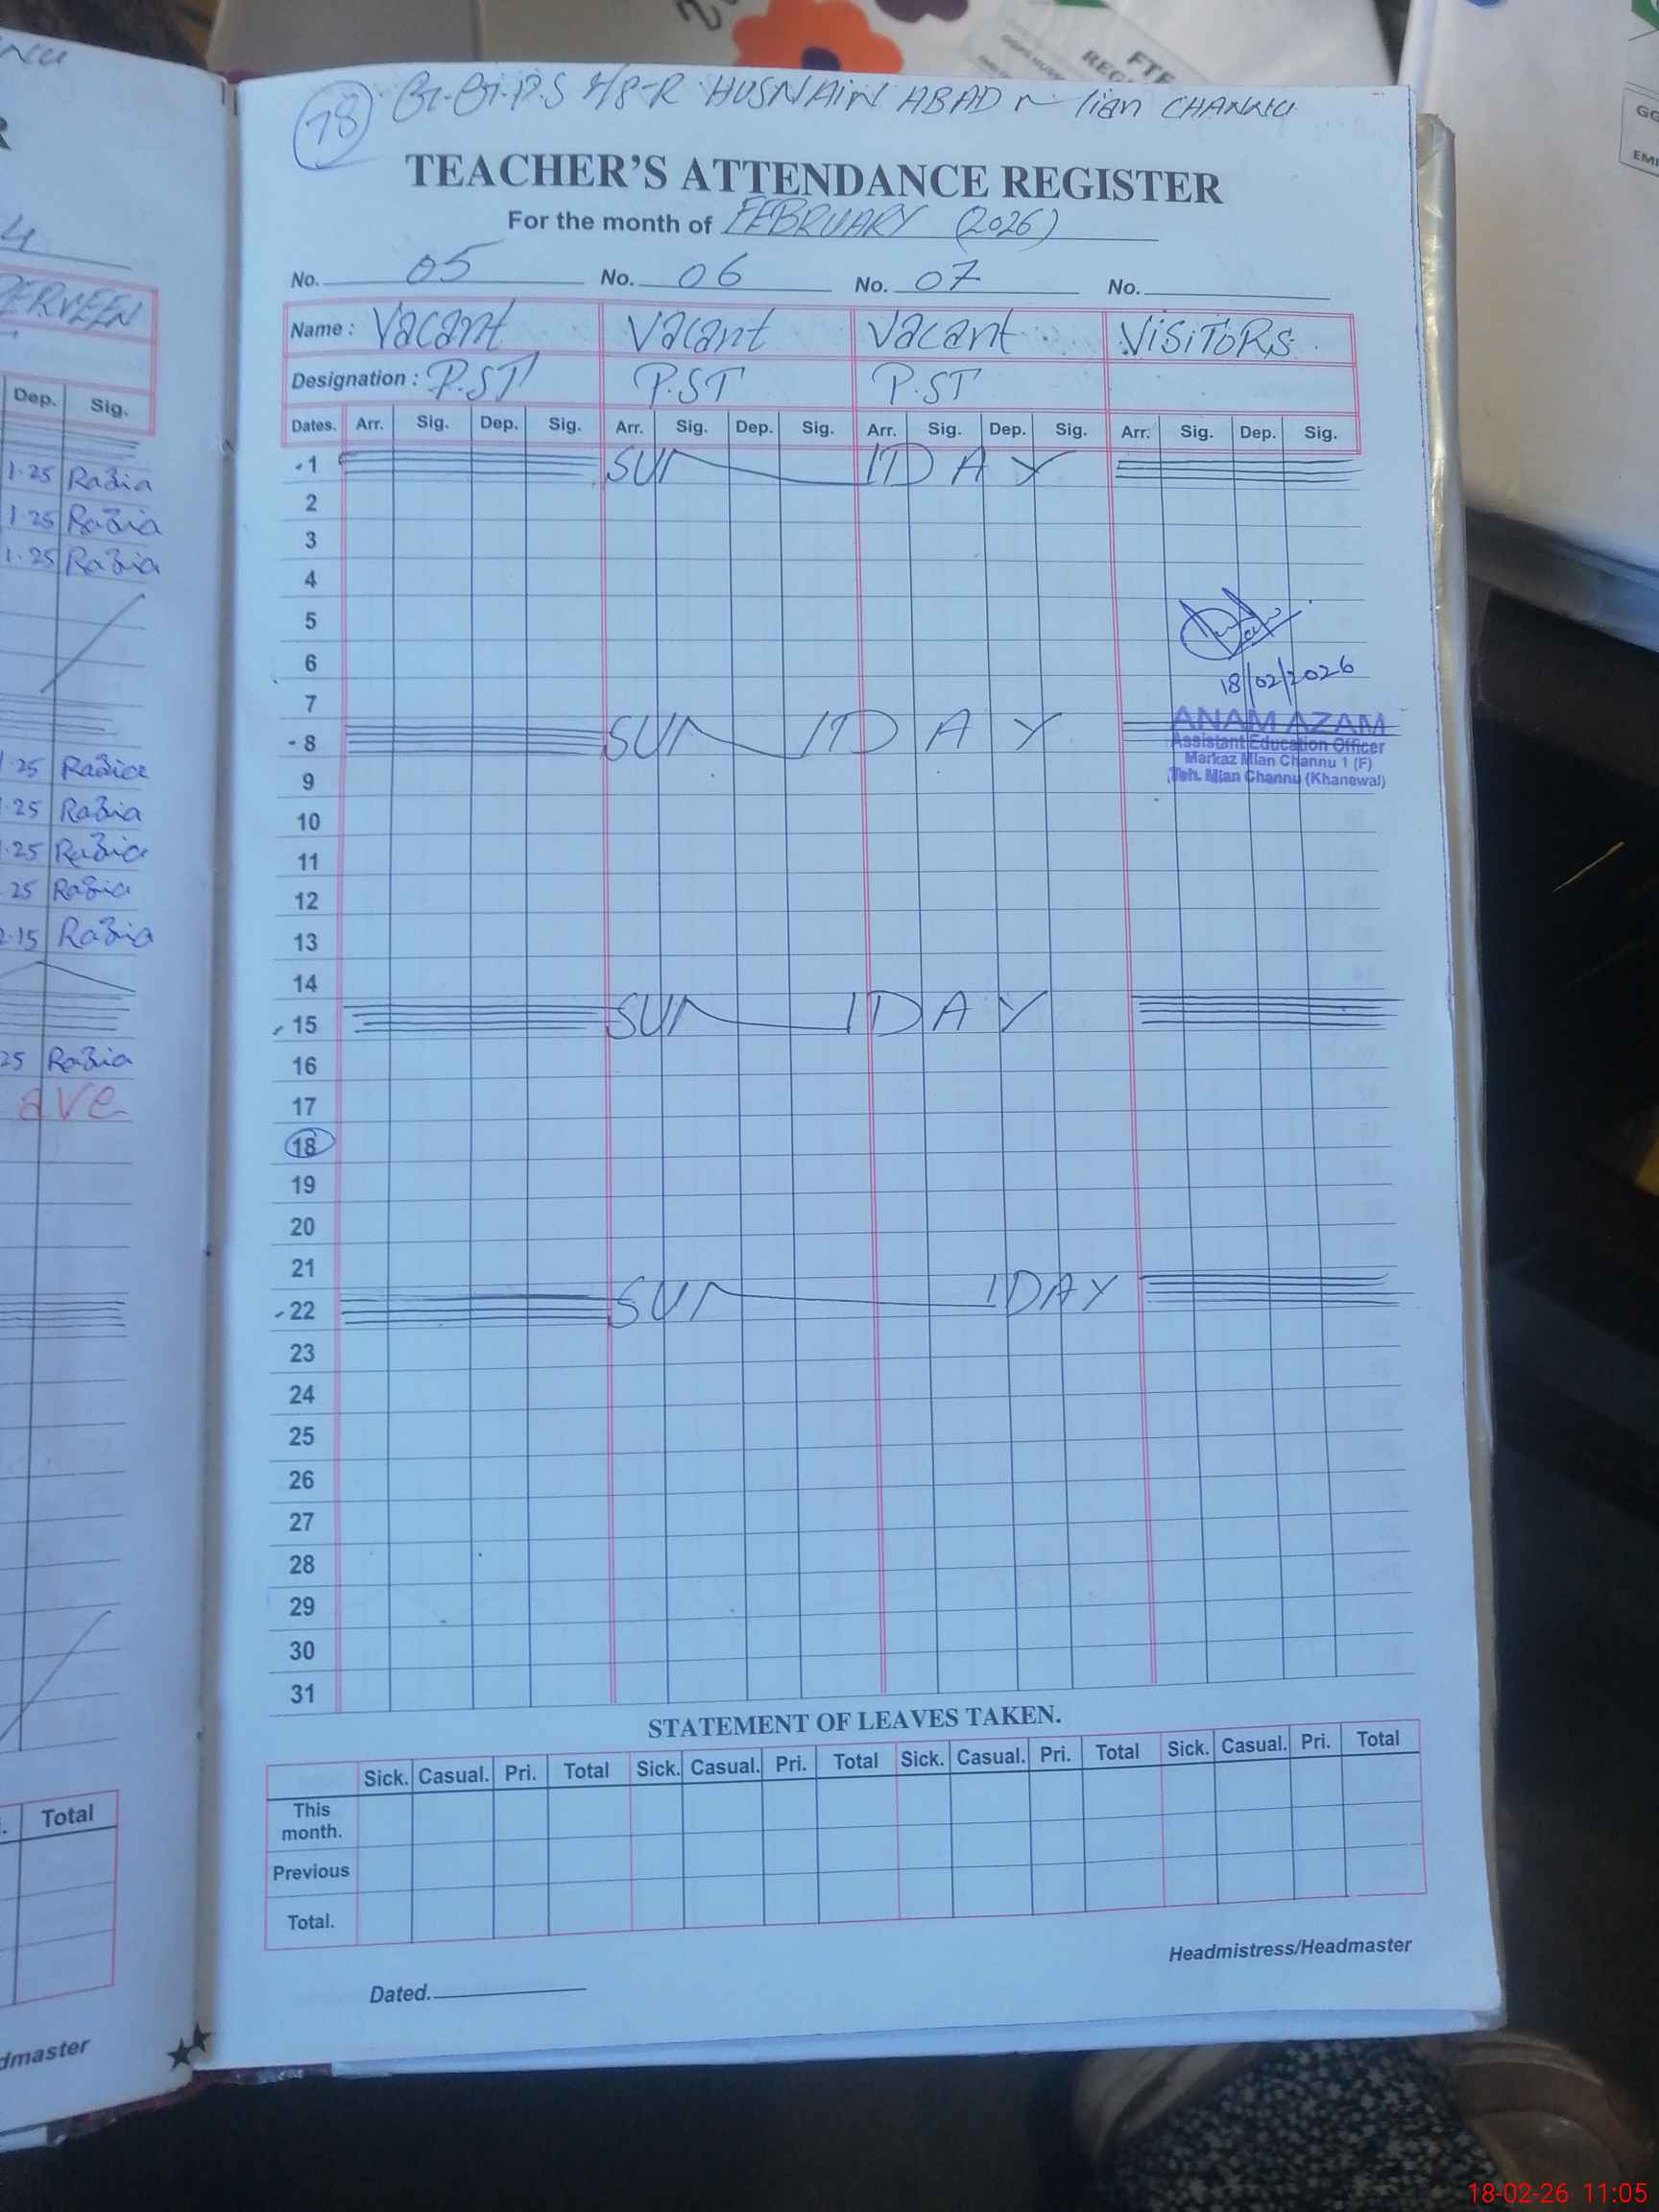 FTF
REG
GO
EMI
NNU
R
4
PERVEEN
Dep. Sig.
1.25 Rabia
1.25 Rabia
1.25 Rabia
1.25 Rabia
.25 Rabia
.25 Rabia
25 Rabia
2.15 Rabia
25 Rabia
ave
Total
dmaster
78 G.G.P.S 4/8-R HUSNAIN ABAD Mian CHANNU
TEACHER'S ATTENDANCE REGISTER
For the month of FEBRUARY (2026)
No. 05 No. 06 No. 07 No.
Name : Vacant Vacant Vacant VISITORS.
Designation : P.ST P.ST P.ST
Dates. Arr. Sig. Dep. Sig. Arr. Sig. Dep. Sig. Arr. Sig. Dep. Sig. Arr. Sig. Dep. Sig.
1 SUN DAY
2
3
4
5
6
18/02/2026
7
ANAM AZAM
8 SUN DAY
Assistant Education Officer
Markaz Mian Channu 1 (F)
9
Teh. Mian Channu (Khanewal)
10
11
12
13
14
15 SUN DAY
16
17
18
19
20
21
22 SUN DAY
23
24
25
26
27
28
29
30
31
STATEMENT OF LEAVES TAKEN.
Sick. Casual. Pri. Total Sick. Casual. Pri. Total Sick. Casual. Pri. Total Sick. Casual. Pri. Total
This
month.
Previous
Total.
Headmistress/Headmaster
Dated.
18-02-26 11:05